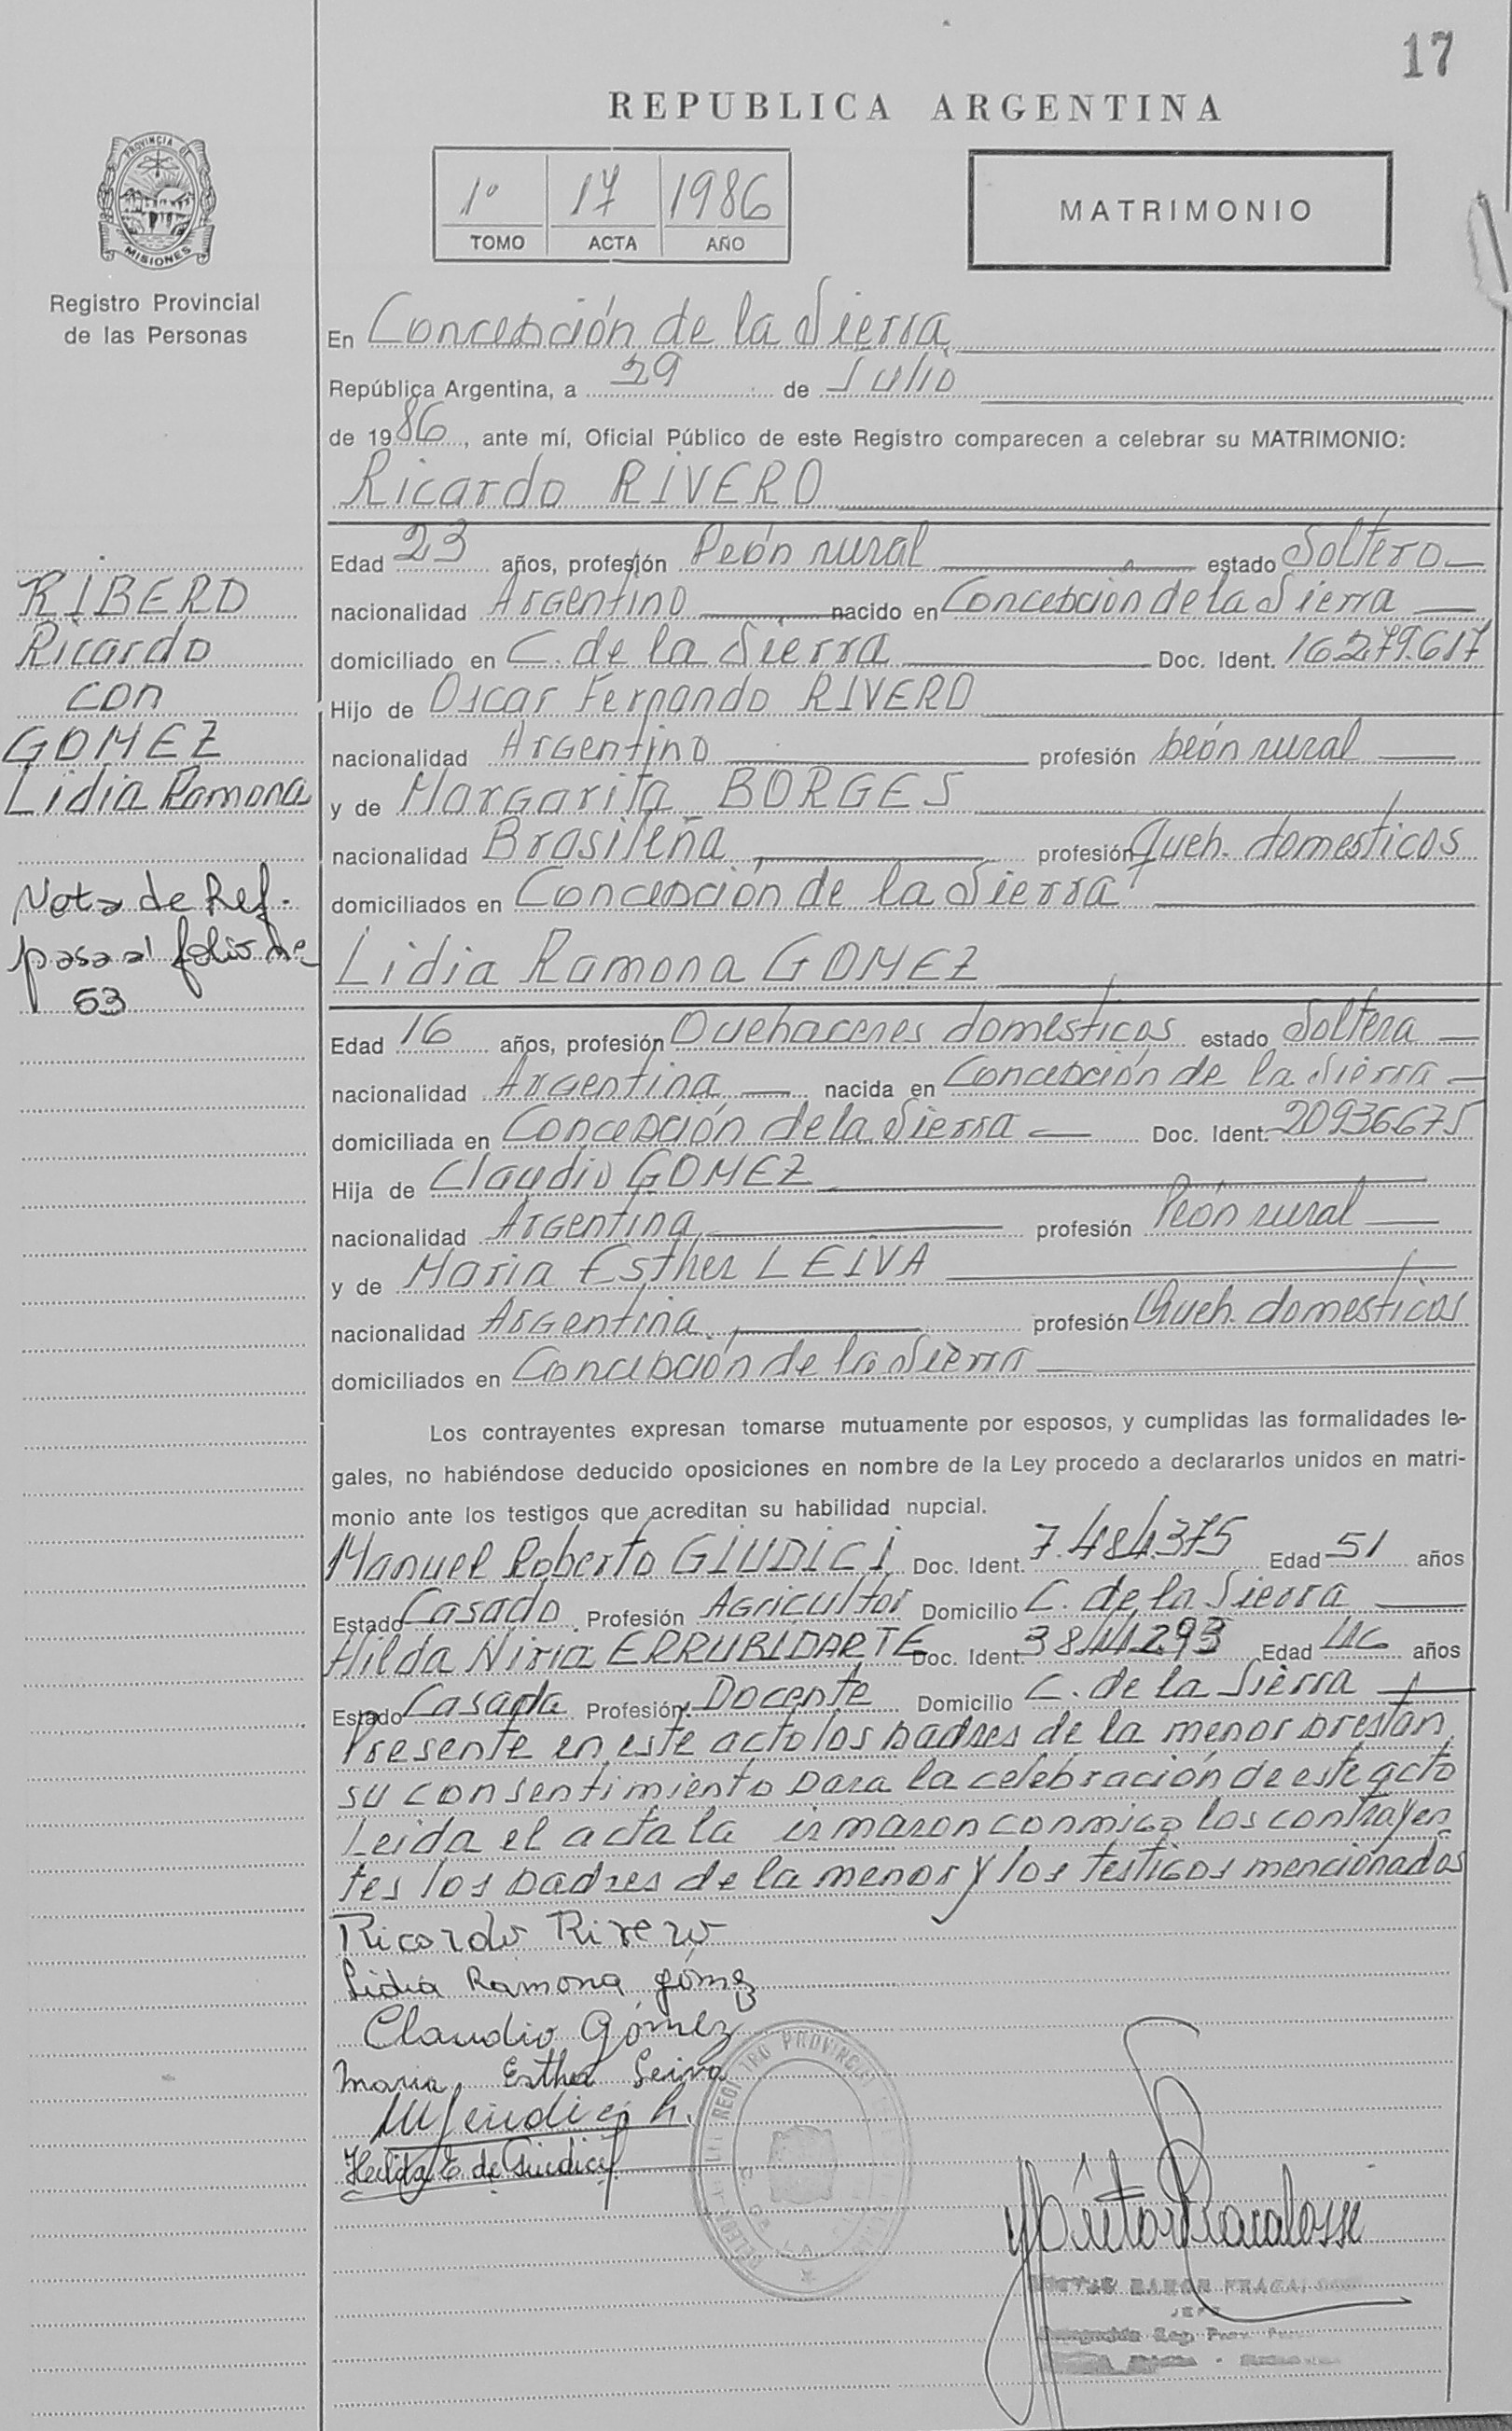 17
REPUBLICA ARGENTINA
PROVINCIA DE
MISIONES
Registro Provincial
de las Personas
1º 17 1986
TOMO ACTA AÑO
MATRIMONIO
En Concepción de la Sierra
República Argentina, a 29 de Julio
de 1986, ante mí, Oficial Público de este Registro comparecen a celebrar su MATRIMONIO:
Ricardo RIVERO
Edad 23 años, profesión Peón rural estado Soltero
nacionalidad Argentino nacido en Concepción de la Sierra
domiciliado en C. de la Sierra Doc. Ident. 16279.617
Hijo de Oscar Fernando RIVERO
nacionalidad Argentino profesión peón rural
y de Margarita BORGES
nacionalidad Brasileña, profesión Queh. domesticos
domiciliados en Concepción de la Sierra
RIBERO
Ricardo
con
GOMEZ
Lidia Ramona
Nota de Ref.
pasa al folio de
53
Lidia Ramona GOMEZ
Edad 16 años, profesión Quehaceres domésticos estado Soltera
nacionalidad Argentina nacida en Concepción de la Sierra
domiciliada en Concepción de la Sierra Doc. Ident. 20936675
Hija de Claudio GOMEZ
nacionalidad Argentina profesión Peón rural
y de Maria Esther LEIVA
nacionalidad Argentina profesión Queh. domesticos
domiciliados en Concepción de la Sierra
Los contrayentes expresan tomarse mutuamente por esposos, y cumplidas las formalidades le-
gales, no habiéndose deducido oposiciones en nombre de la Ley procedo a declararlos unidos en matri-
monio ante los testigos que acreditan su habilidad nupcial.
Manuel Roberto GIUDICI Doc. Ident. 7.484.375 Edad 51 años
Estado Casado Profesión Agricultor Domicilio C. de la Sierra
Hilda Niria ERRUBIDARTE Doc. Ident. 3844293 Edad 46 años
Estado Casada Profesión Docente Domicilio C. de la Sierra
Presente en este acto los padres de la menor prestan
su consentimiento para la celebración de este acto
Leida el acta la irmaron conmigo los contrayen
tes los padres de la menor y los testigos mencionados
Ricardo Rivero
Lidia Ramona gómez
Claudio Gómez
Maria Esther Leiva
Hilda E de Giudici
REGISTRO PROVINCIAL
JEFE
Reg. Prov.